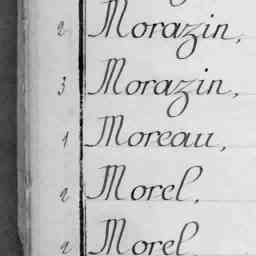 2 Morazin,
3 Morazin,
1 Moreau,
2 Morel,
2 Morel,